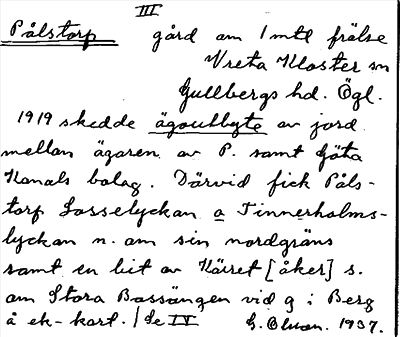 III
Pålstorp gård om 1 mtl frälse
Vreta Kloster sn
Gullbergs hd. Ögl.
1919 skedde ägoutbyte av jord
mellan ägaren av P. samt Göta
Kanals bolag. Därvid fick Påls-
torp Lasselyckan o Tinnerholms-
lyckan n. om sin nordgräns
samt en bit av Käret [åker] s.
om Stora Bassängen vid g i Berg
å ek-kart. / Se IV G. Olson. 1937.